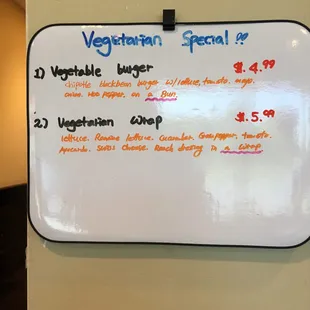 Vegetarian Special !!
1) Vegetable burger $4.99
chipotle blackbean burger w/ lettuce, tomato, mayo,
onion, hot pepper, on a Bun.
2) Vegetarian wrap $5.99
lettuce. Romaine lettuce. Cucumber. Green pepper, tomato.
Avocado. Swiss Cheese. Ranch dressing in a wrap.